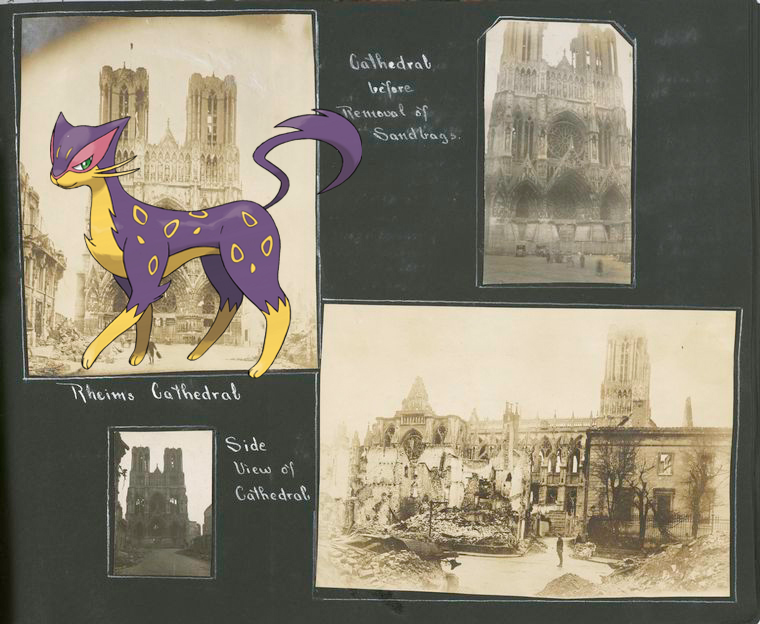 Cathedral
before
Removal of
Sandbags.
Rheims Cathedral
Side
View of
Cathedral